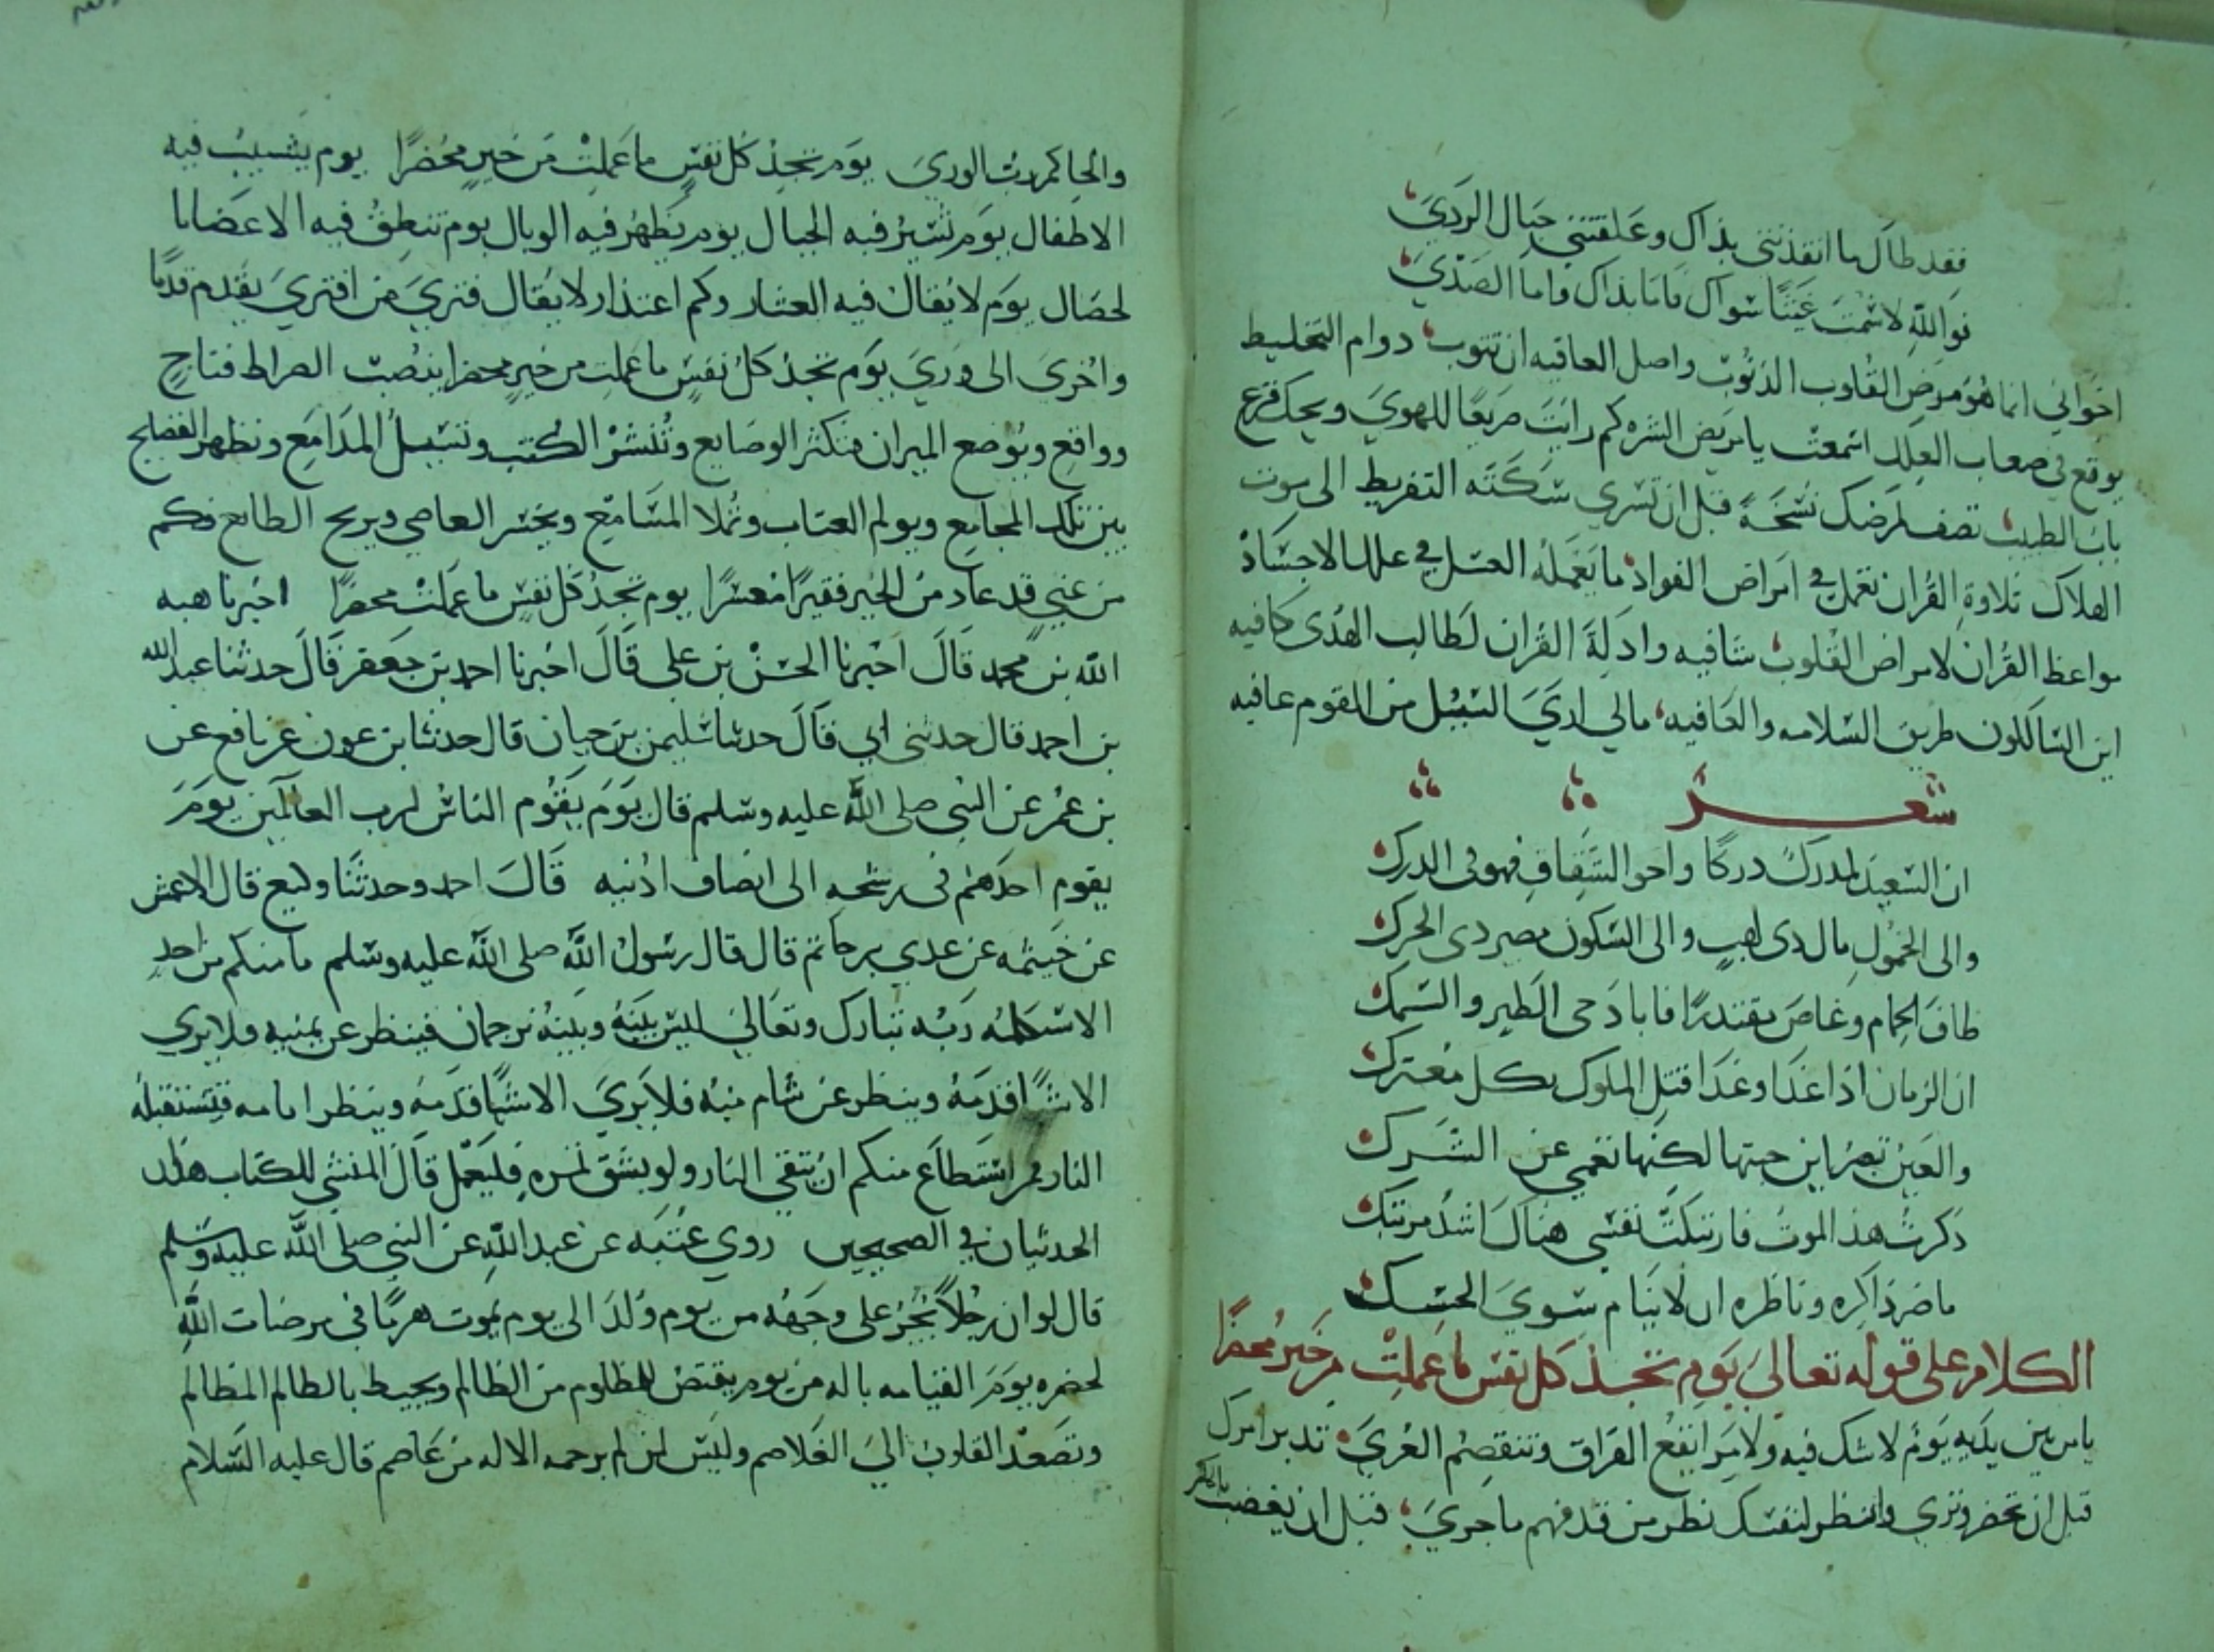 فقد طال ما انقذتني بذاك وعلقتني حبال الردي
فوالله لاشمت عيثا سواك فاما بذاك واما الصدي
اخواني انما هو مرض القلوب الذنوب واصل العافيه ان تتوب دوام التخليط
يوقع في صعاب العلل اسمعت يا مريض الشره كم رايت صريعا للهوي ويحك قرع
باب الطبيب تصف لمرضك نسخة قبل ان تسري سكته التفريط الى موت
الهلاك تلاوة القران تعمل في امراض الفواد ما يعمله العسل في علل الاجساد
مواعظ القران لامراض القلوب شافيه وادلة القران لطالب الهدى كافيه
اين السالكون طريق السلامه والعافيه مالي اري السبل من القوم عافيه
شعر
ان السعيد لمدرك دركا واخو الشقاق فهو في الدرك
والى الخمول مال ذى لهب والى السكون مصير ذى الحرك
طاف الحمام وغاص مقتدرا فاباد حى الطير والسمك
ان الزمان اذا غدا وعدا قتل الملوك بكل معترك
والعين تبصر اين حبتها لكنها تعمي عن الشرك
ذكرت هذا الموت فارتبكت نفسي هناك اشد مرتبك
ما ضر ذاكره وناظره ان لا ينام سوي الحسك
الكلام على قوله تعالي يوم تجد كل نفس ما عملت من خير محضرا
يا من بين يديه يوم لا شك فيه ولا مرا يقع الفراق وتنفصم العري تدبر امرك
قبل ان تحضر وتري وانظر لنفسك نظر من قد فهم ما جري قبل ان يغضب
والحاكم رب الوري يوم تجد كل نفس ما عملت من خير محضرا يوم يشيب فيه
الاطفال يوم تسير فيه الجبال يوم يظهر فيه الوبال يوم تنطق فيه الاعضا با
لخصال يوم لا يقال فيه العثار وكم اعتذار لا يقال فتري من افتري يقدم قدما
واخرى الى وري يوم تجد كل نفس ما عملت من خير محضرا ينصب الصراط فناج
وواقع ويوضع الميزان فتكثر الوضايع وتنشر الكتب وتسيل المدامع وتظهر الفضايح
بين تلك المجامع ويولم العتاب وتملا المسامع ويخسر العاصي ويربح الطايع فكم
من غني قد عاد من الخير فقيرا معسرا يوم تجد كل نفس ما عملت محضرا اخبرنا هبه
الله بن محمد قال اخبرنا الحسن بن علي قال اخبرنا احمد بن جعفر قال حدثنا عبد الله
بن احمد قال حدثني ابي قال حدثنا سليمن بن حيان قال حدثنا بن عون عن نافع عن
بن عمر عن النبي صلى الله عليه وسلم قال يوم يقوم الناس لرب العالمين يوم
يقوم احدهم في رشحه الى انصاف اذنيه قال احمد وحدثنا وكيع قال الاعمش
عن خيثمه عن عدي بن حاتم قال قال رسول الله صلى الله عليه وسلم ما منكم من احد
الا سيكلمه ربه تبارك وتعالي ليس بينه وبينه ترجمان فينظر عن يمنيه فلا يري
الا شيا قدمه وينظر عن شام منه فلا يري الا شيا قدمه وينظر امامه فتستقبله
النار فمن استطاع منكم ان يتقي النار ولو بشق تمره فليفعل قال المنشي للكتاب هذا
الحدثيان في الصحيحين روي عتبه عن عبد الله عن النبي صلى الله عليه وسلم
قال لو ان رجلا يجر على وجهه من يوم ولد الى يوم يموت هرما في مرضات الله
لحضره يوم القيامه باله من يوم يقتص للمظلوم من الظالم ويحيط بالظالم المظالم
وتصعد القلوب الي الغلاصم وليس لمن لم يرحمه الاله من عاصم قال عليه السلام